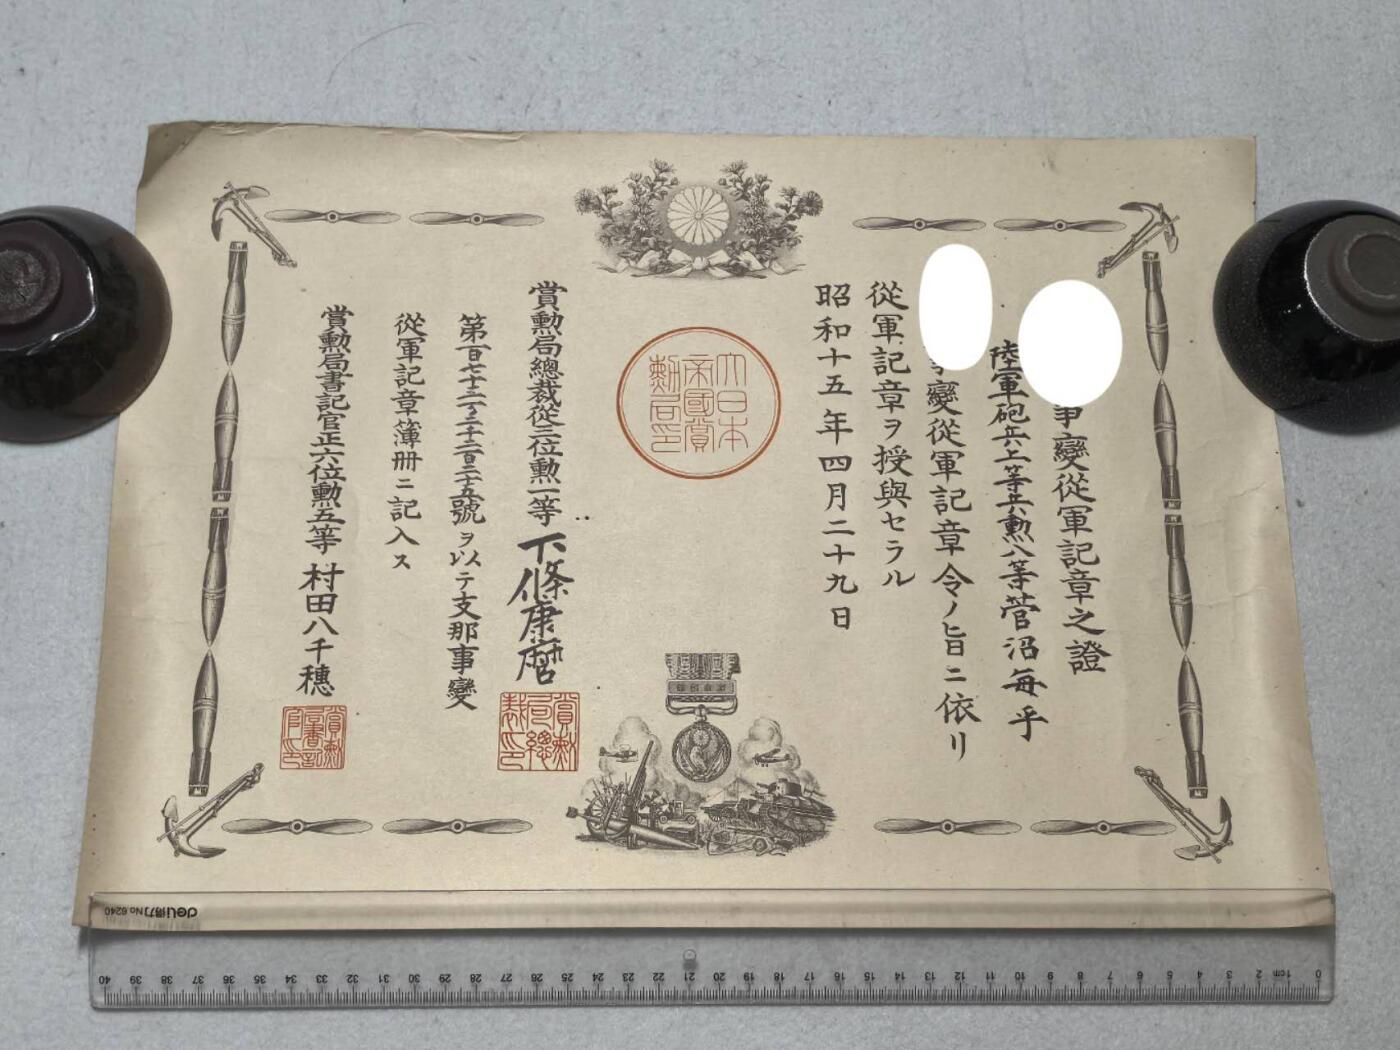 事變從軍記章之證
陸軍砲兵上等兵勲八等菅沼毎乎
事變從軍記章令ノ旨ニ依リ
從軍記章ヲ授與セラル
昭和十五年四月二十九日
大日本
帝國賞
勲局印
賞勲局總裁從三位勲一等下條康麿
賞勲
局總
裁印
號ヲ以テ支那事變
從軍記章簿冊ニ記入ス
賞勲局書記官正六位勲五等村田八千穗
賞勲
局書記
官印
deli得力 No 6240
0 1cm 2 3 4 5 6 7 8 9 10 11 12 13 14 15 16 17 18 19 20 21 22 23 24 25 26 27 28 29 30 31 32 33 34 35 36 37 38 39 40